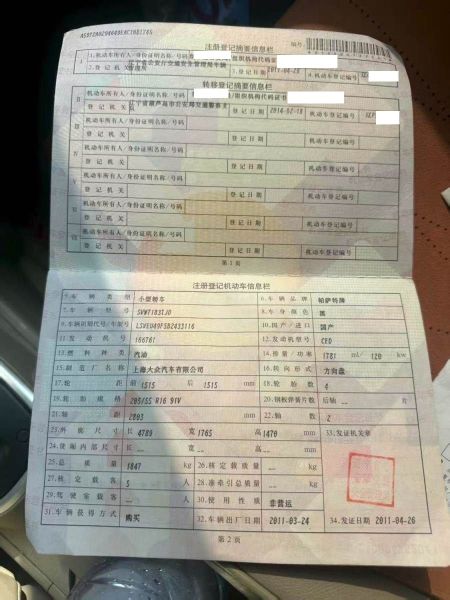 注册登记摘要信息栏
编号:
1.机动车所有人/身份证明名称/号码
组织机构代码证
2.登记机关
4.机动车登记编号
转移登记摘要信息栏
Ⅱ 机动车所有人/身份证明名称/号码
/组织机构代码证书
登记机关
登记日期 2014-02-18 机动车登记编号
Ⅲ 机动车所有人/身份证明名称/号码
登记机关 登记日期 机动车登记编号
Ⅳ 机动车所有人/身份证明名称/号码
登记机关 登记日期 机动车登记编号
Ⅴ 机动车所有人/身份证明名称/号码
登记机关 登记日期 机动车登记编号
Ⅵ 机动车所有人/身份证明名称/号码
登记机关 登记日期 机动车登记编号
Ⅶ 机动车所有人/身份证明名称/号码
登记机关 登记日期 机动车登记编号
第1页
注册登记机动车信息栏
5.车辆类型 小型轿车 6.车辆品牌 帕萨特牌
7.车辆型号 SVW7183LJD 8.车身颜色 黑
9.车辆识别代号/车架号 LSVEU49F5B2433116 10.国产/进口 国产
11.发动机号 166761 12.发动机型号 CED
13.燃料种类 汽油 14.排量/功率 1781 ml/ 120 kw
15.制造厂名称 上海大众汽车有限公司 16.转向形式 方向盘
17.轮距 前 1515 后 1515 mm 18.轮胎数 4
19.轮胎规格 205/55 R16 91V 20.钢板弹簧片数 后轴 -- 片
21.轴距 2803 mm 22.轴数 2
23.外廓尺寸 长 4789 宽 1765 高 1470 mm 33.发证机关章
24.货厢内部尺寸 长 -- 宽 -- 高 -- mm
25.总质量 1847 kg 26.核定载质量 -- kg
27.核定载客 5 人 28.准牵引总质量 -- kg
29.驾驶室载客 -- 人 30.使用性质 非营运
31.车辆获得方式 购买 32.车辆出厂日期 2011-03-24 34.发证日期 2011-04-26
第2页